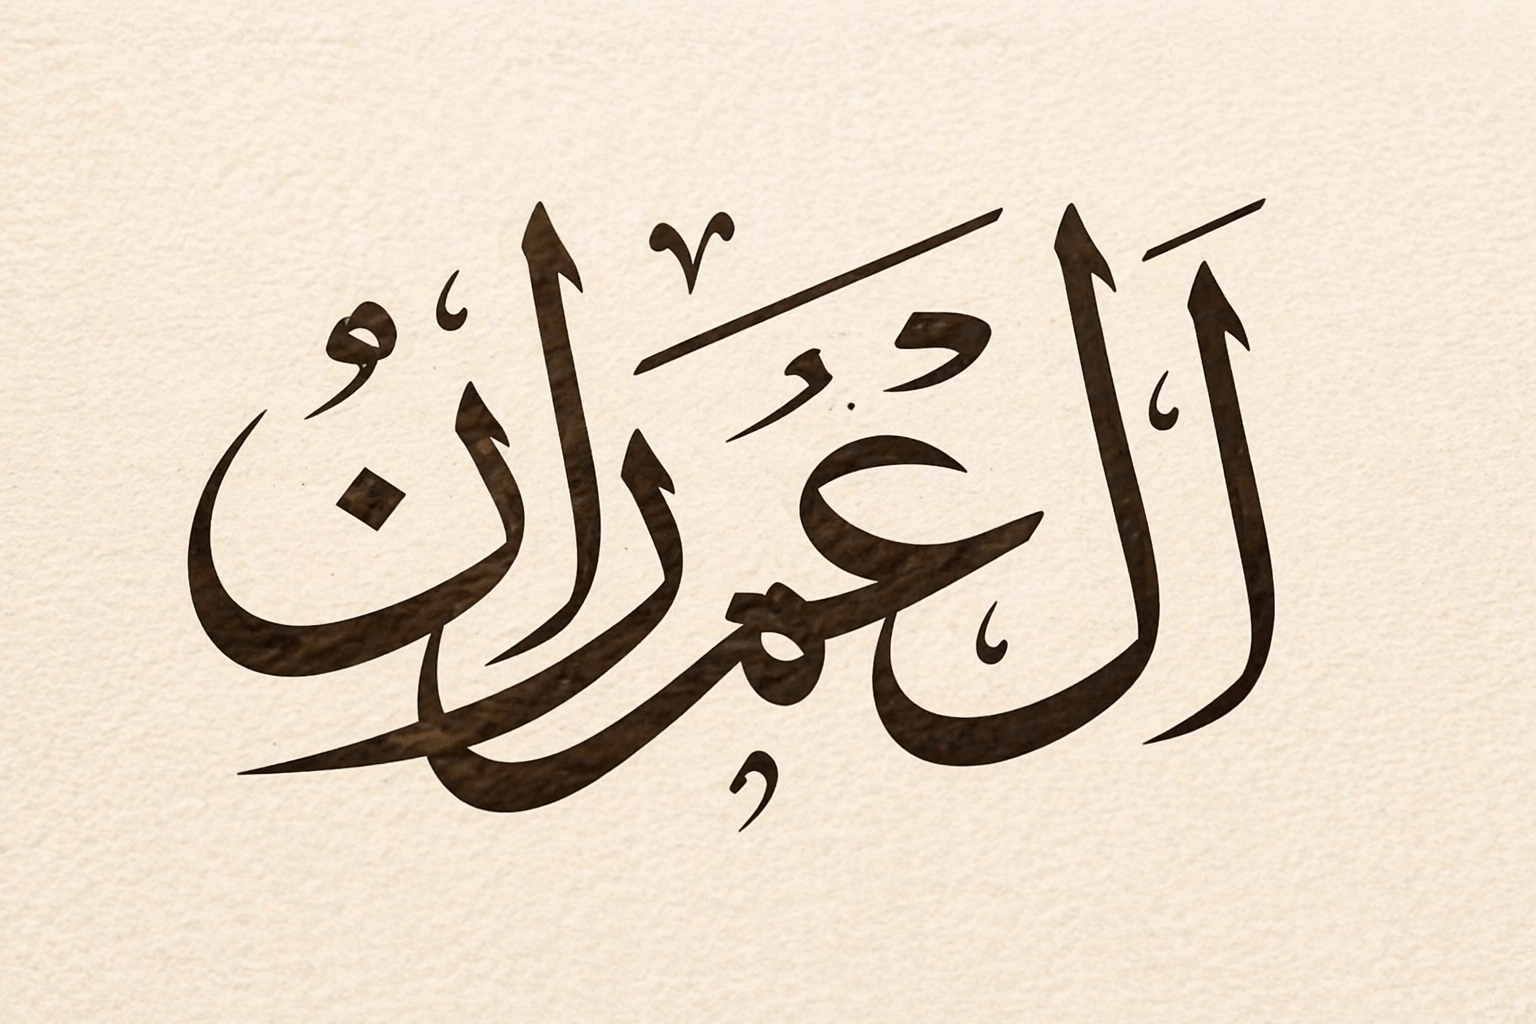 آل عمران